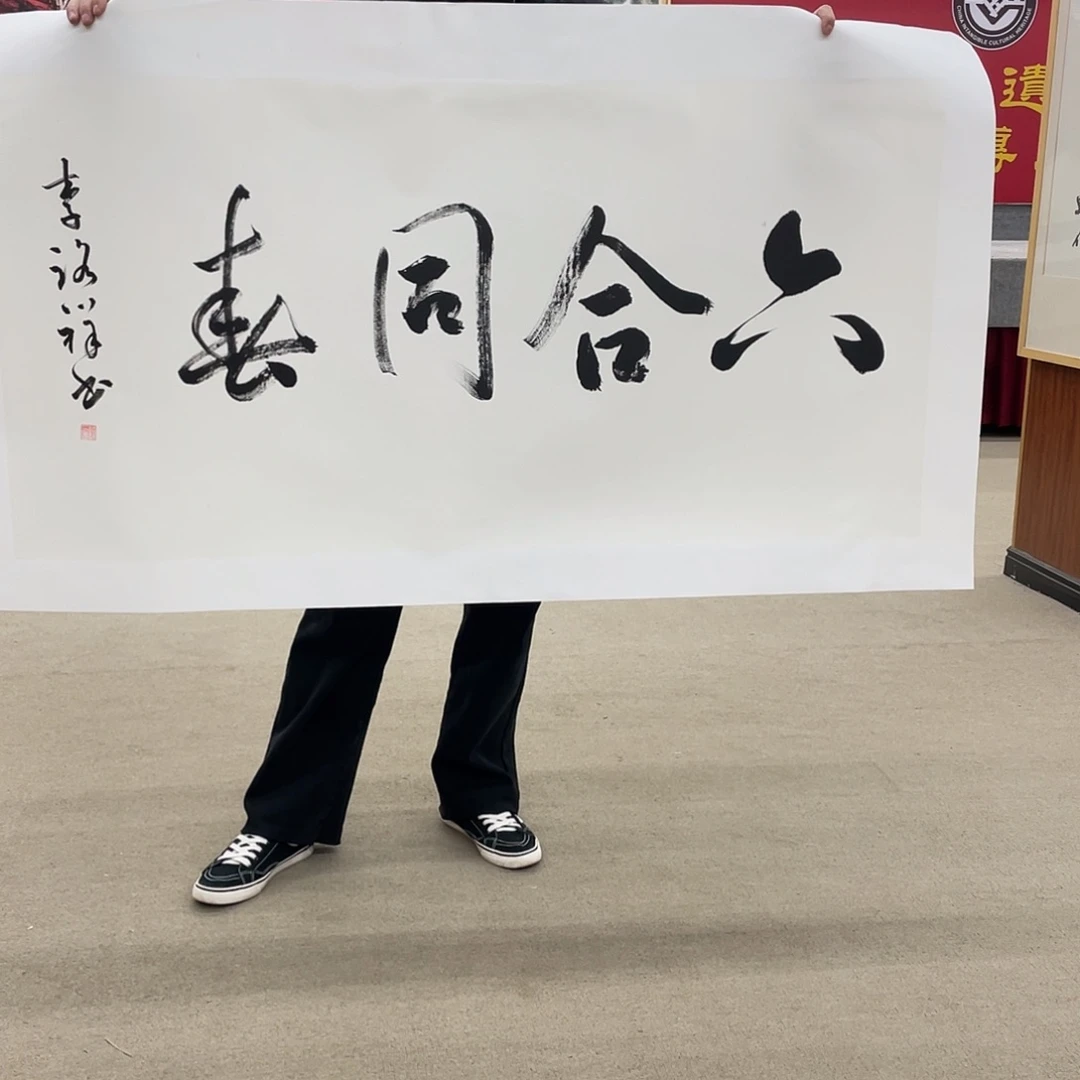 六合同春
李諮祥书
CHINA INTANGIBLE CULTURAL HERITAGE
遺